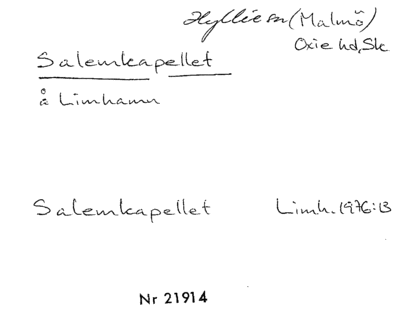 Hyllie sn (Malmö)
Oxie hd, Sk
Salemkapellet
å Limhamn
Salemkapellet Limh. 1976:13
Nr 21914